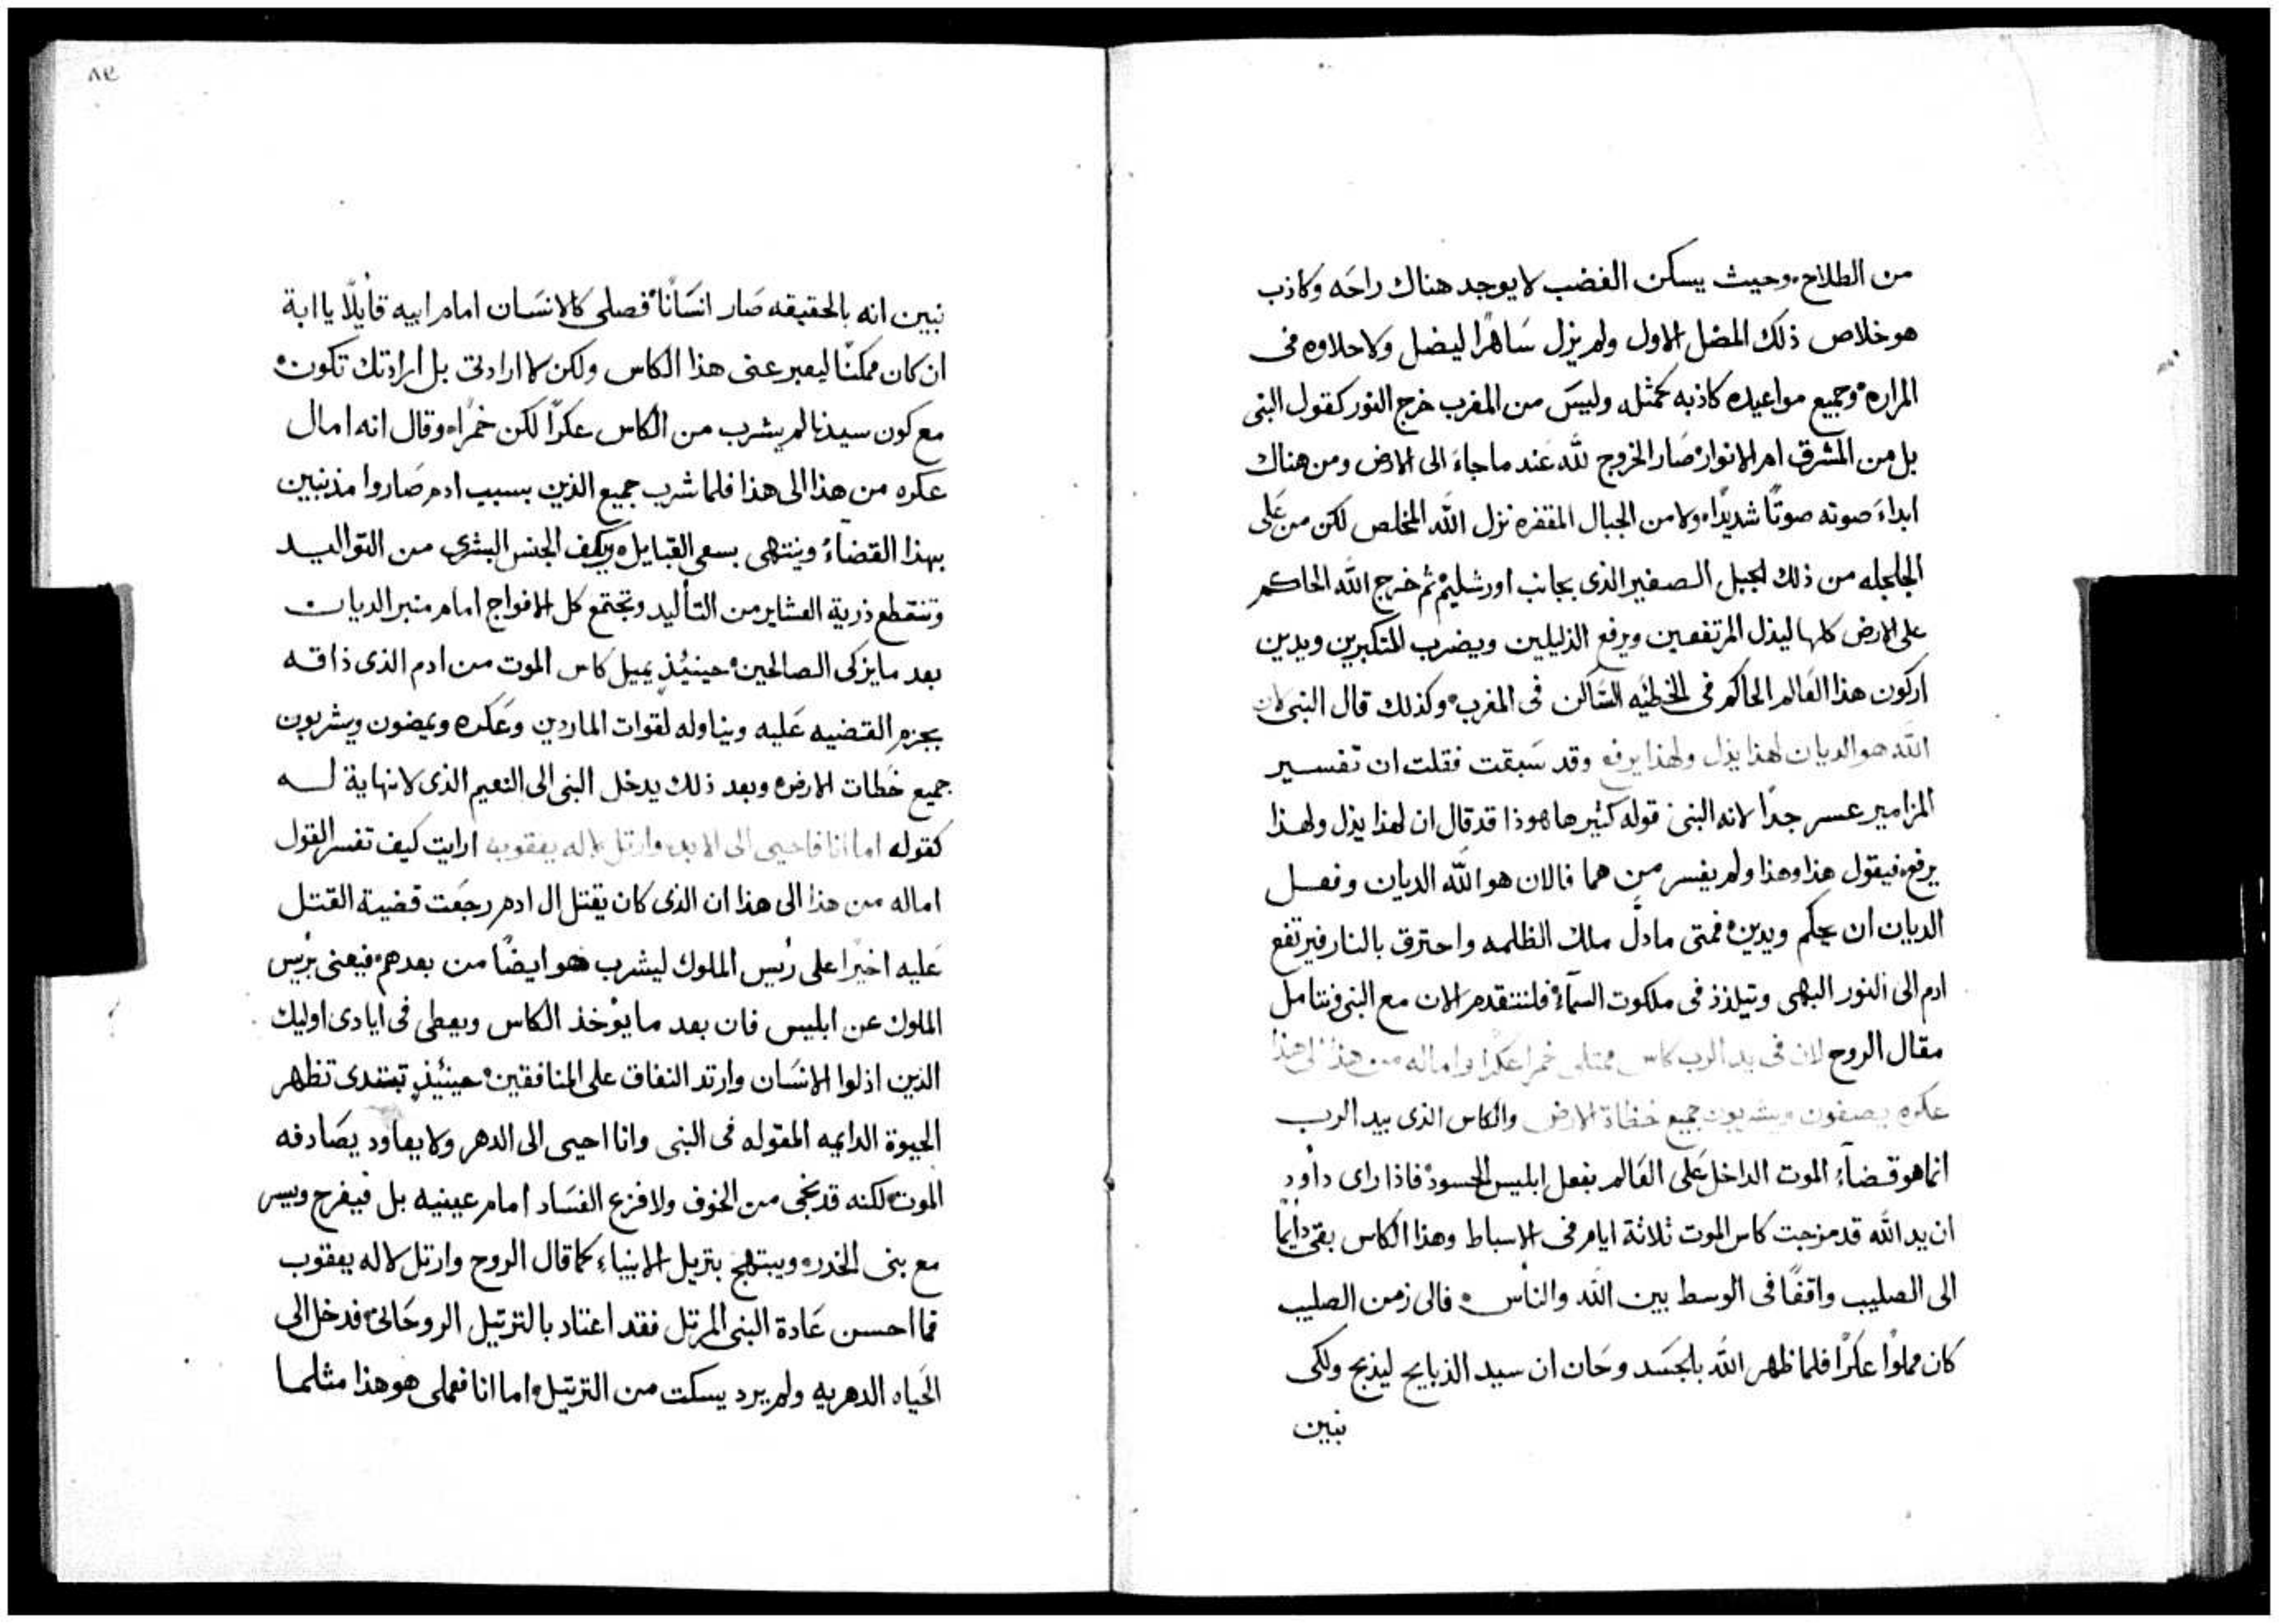 من الطلاح. وحيث يسكن الغضب لا يوجد هناك راحَه وكاذب
هو خلاص ذلك المضل الاول ولم يزل سَاهرًا ليضل ولا حلاوه في
المراره وجميع مواعيده كاذبه كمثله وليسَ من المغرب خرج النور كقول النبي
بل من المشرق ام الانوار صَار الخروج لله عَند ما جاءَ الى الارض ومن هناك
ابداءَ صوته صوتًا شديدًا. ولا من الجبال المقفره نزل الله المخلص لكن من عَلى
الجلجله من ذلك الجبل الصغير الذى بجانب اورشليم ثم خرج الله الحاكم
على الارض كلها ليذل المرتفعين ويرفع الذليلين ويضرب المتكبرين ويدين
اركون هذا العَالم الحاكم في الخطيَه السَّاكن في المغرب وكذلك قال النبي لان
الله هو الديان لهذا يذل ولهذا يرفع وقد سَبقت فقلت ان تفسير
المزامير عسر جدًا لانه النبي قوله كثير ها هوذا قد قال ان لهذا يذل ولهذا
يرفع. فيقول هذا وهذا ولم يفسر من هما فالان هو الله الديان وفعل
الديان ان يحكم ويدين فمتى ما دلَّ ملك الظلمه واحترق بالنار فيرتفع
ادم الى النور البهى ويتلذذ في ملكوت السمآء فلنتقدم الان مع النبي فنتامل
مقال الروح لان في يد الرب كاس ممتلى خمرا عكرًا واماله من هذا الى هذا
عكره يصفون ويشربون جميع خطاة الارض والكاس الذى بيد الرب
انما هو قضآءُ الموت الداخل عَلى العَالم بفعل ابليس الحسود فاذا راى داود
ان يد الله قد مزجت كاس الموت ثلاثة ايام في الاسباط وهذا الكاس بقى دايمًا
الى الصليب واقفًا في الوسط بين الله والناس. فالى زمن الصليب
كان مملوًا عكرًا فلما ظهر الله بالجسَد وحَان ان سيد الذبايح ليذبح ولكى
نبين
٨٣
نبين انه بالحقيقه صَار انسَانًا فصلى كالانسَان امام ابيه قايلًا يا ابة
ان كان ممكنًا ليعبر عنى هذا الكاس ولكن لا ارادتى بل ارادتك تكون
مع كون سيدنا لم يشرب من الكاس عكرًا لكن خمرًا. وقال انه امال
عكره من هذا الى هذا فلما شرب جميع الذين بسبب ادم صَاروا مذنبين
بهذا القضاءُ وينتهى بسعى القبايل ويكف الجنس البشرى من التواليد
وتنقطع ذرية العشاير من التأليد وتجتمع كل الافواج امام منبر الديان
بعد ما يزكى الصالحين حينيُذٍ يميل كاس الموت من ادم الذى ذاقه
بجزم القضيه عَليه ويناوله لقوات الماردين وعَكره ويمضون ويشربون
جميع خَطات الارض وبعد ذلك يدخل النبى الى النعيم الذى لا نهاية له
كقوله اما انا فاحيى الى الابد وارتل لاله يعقوب ارايت كيف تفسر القول
اماله من هذا الى هذا ان الذى كان يقتتل ال ادم رجعَت قضية القتل
عَليه اخيرًا على رئيس الملوك ليشرب هو ايضًا من بعدهم فيعنى برئيس
الملوك عن ابليس فان بعد ما يؤخذ الكاس ويعطى في ايادى اوليك
الذين اذلوا الانسَان وارتد النفاق على المنافقين حينئيذٍ تبتدى تظهر
الحيوة الدايمه المقوله في النبى وانا احيى الى الدهر ولا يعاود يصَادفه
الموت لكنه قد نجى من الخوف ولا فزع الفسَاد امام عينيه بل فيفرح ويسر
مع بنى الخدر. ويبتهج بتريل الانبياء كما قال الروح وارتل لاله يعقوب
فما احسن عَادة النبى المرتل فقد اعتاد بالترتيل الروحَانى فدخل الى
الحَياه الدهريه ولم يرد يسكت من الترتيل واما انا فعملى هو هذا مثلما